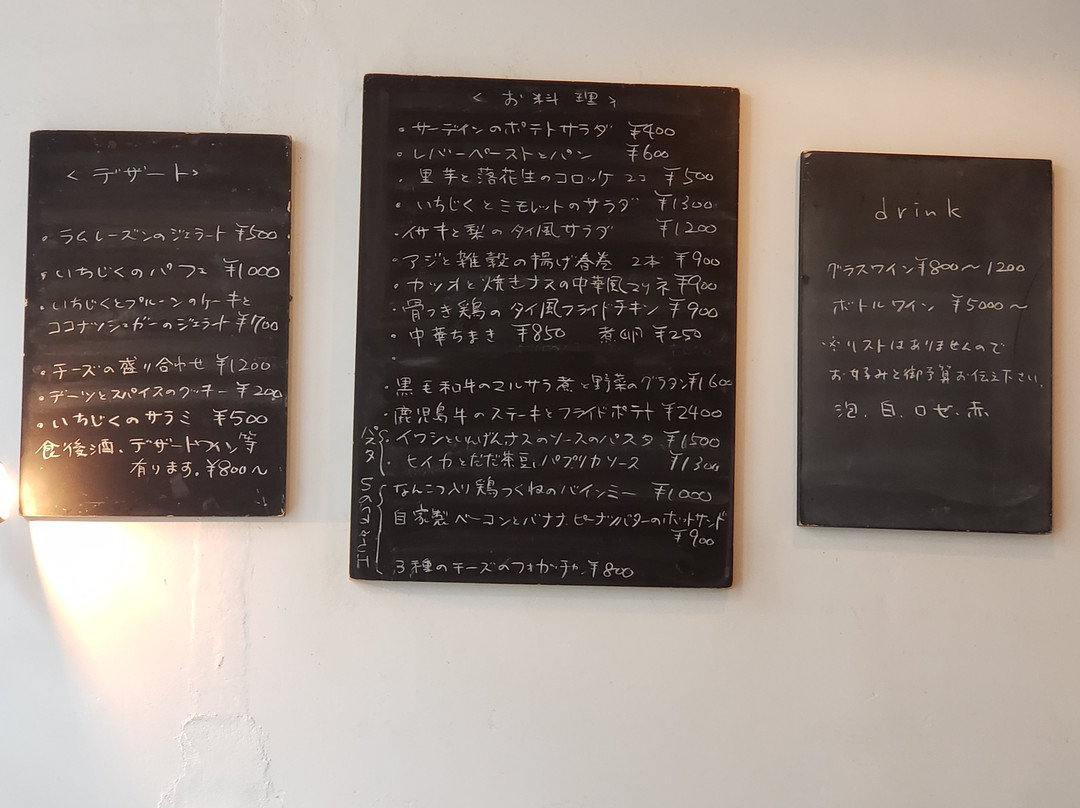 < デザート>
・ラムレーズンのジェラート ¥500
・いちじくのパフェ ¥1000
・いちじくとプルーンのケーキと
ココナッツシュガーのジェラート ¥1700
・チーズの盛り合わせ ¥1200
・デーツとスパイスのクッキー ¥200
・いちじくのサラミ ¥500
食後酒、デザートワイン等
有ります。¥800〜
< お料理>
・サーディンのポテトサラダ ¥400
・レバーペーストとパン ¥600
・里芋と落花生のコロッケ 2コ ¥500
・いちじくとミモレットのサラダ ¥1300
・イサキと梨のタイ風サラダ ¥1200
・アジと雑穀の揚げ春巻 2本 ¥900
・カツオと焼きナスの中華風マリネ ¥900
・骨つき鶏のタイ風フライドチキン ¥900
・中華ちまき ¥850 煮卵 ¥250
・
・黒毛和牛のマルサラ煮と野菜のグラタン ¥1600
・鹿児島牛のステーキとフライドポテト ¥2400
パスタ
・イワシといんげんナスのソースのパスタ ¥1500
・ヒイカとだだ茶豆、パプリカソース ¥1300
なんこつ入り鶏つくねのバインミー ¥1000
自家製ベーコンとバナナ、ピーナツバターのホットサンド
¥900
3種のチーズのフォカッチャ ¥800
drink
グラスワイン ¥800〜1200
ボトルワイン ¥5000〜
※リストはありませんので
お好みと御予算お伝え下さい。
泡、白、ロゼ、赤